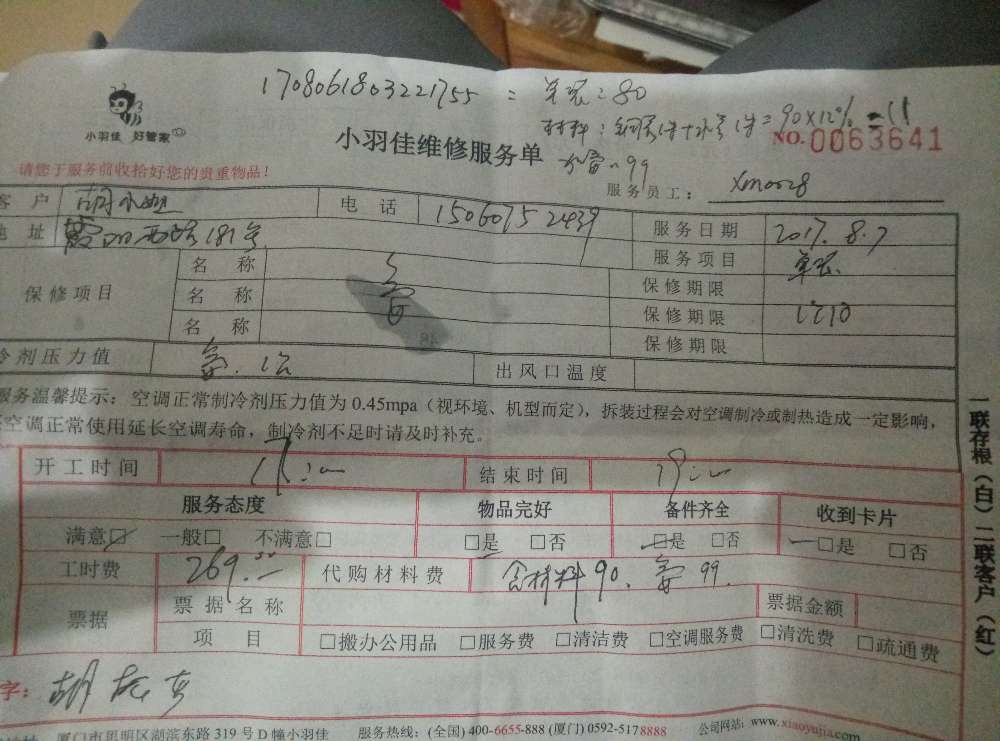 1708061803221755 = 单装=80
小羽佳 好管家
材料: 铜管1件+水管1件=90×12%=11
小羽佳维修服务单
NO. 0063641
加雪=99
请您于服务前收拾好您的贵重物品!
服务员工: xm0028
客 户 电 话 15060752439 服务日期 2017.8.7
地 址 霞阳西路181号 服务项目 单装
保修项目 名 称 保修期限
名 称 保修期限
名 称 保修期限
冷剂压力值 出风口温度
服务温馨提示: 空调正常制冷剂压力值为 0.45mpa (视环境、机型而定), 拆装过程会对空调制冷或制热造成一定影响,
空调正常使用延长空调寿命, 制冷剂不足时请及时补充。
开工时间 结束时间
服务态度 物品完好 备件齐全 收到卡片
满意☑ 一般□ 不满意□ □是 □否 □是 □否 □是 □否
工时费 269.00 代购材料费 含材料90. 99.
票据 票据名称 票据金额
项 目 □搬办公用品 □服务费 □清洁费 □空调服务费 □清洗费 □疏通费
字:
厦门市思明区湖滨东路 319 号 D 幢小羽佳 服务热线: (全国) 400-6655-888 (厦门) 0592-5178888 公司网站: www.xiaoyujia.com
一联存根(白)二联客户(红)